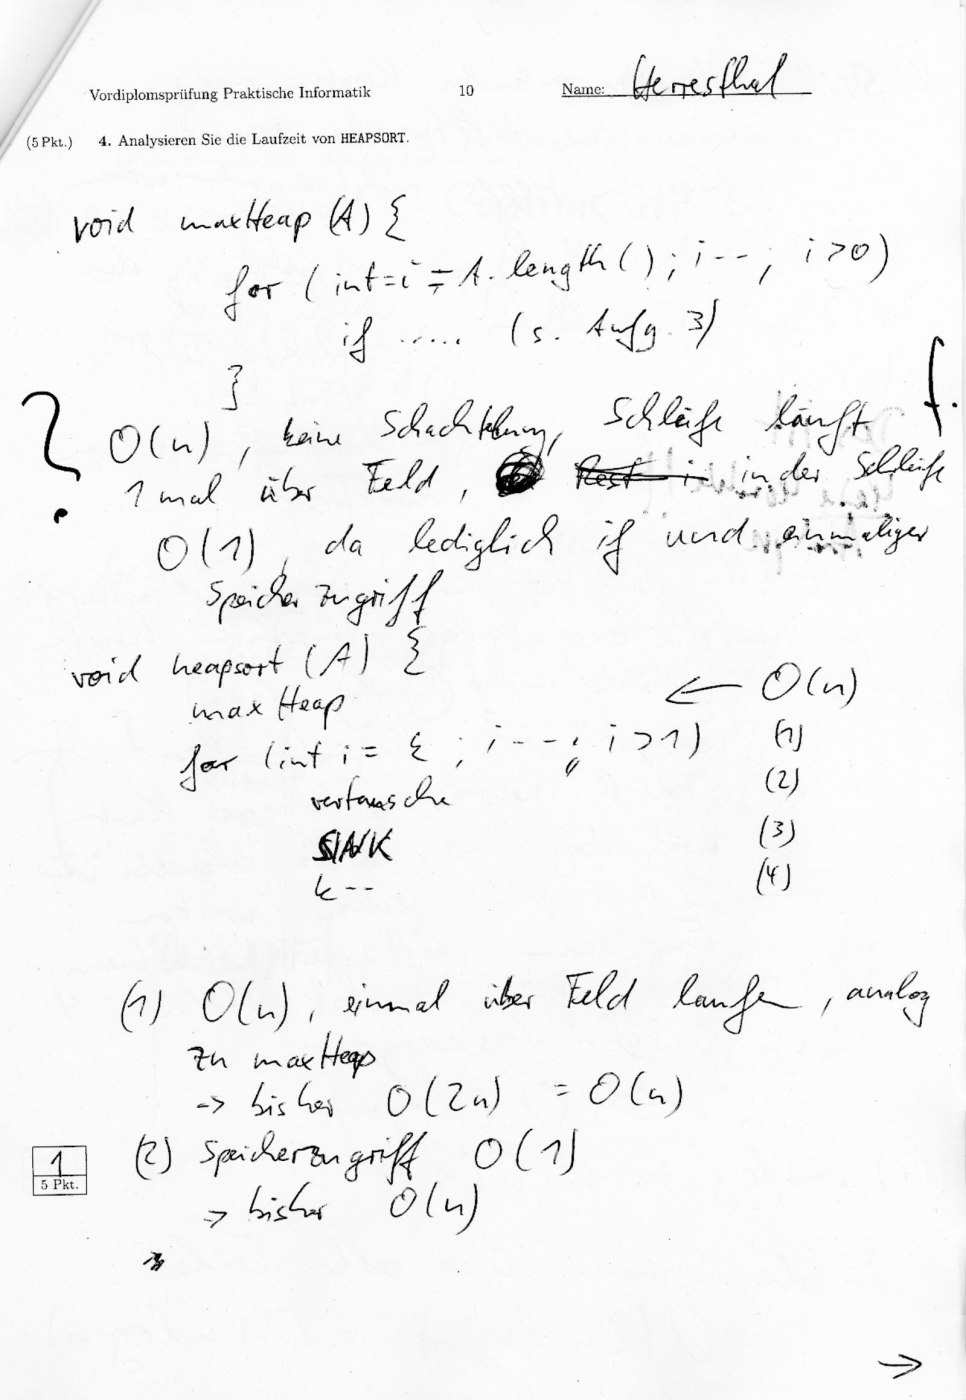 Vordiplomsprüfung Praktische Informatik 10 Name: Herresthal
(5 Pkt.) 4. Analysieren Sie die Laufzeit von HEAPSORT.
void maxHeap (A) {
for (int=i = A.length(); i--; i>0)
if ..... (s. Aufg. 3)
}
? O(n), keine Schachtelung, Schleife läuft f.
1 mal über Feld, in der Schleife
O(1), da lediglich if und einmaliger
Speicherzugriff
void heapsort (A) {
maxHeap ← O(n)
for (int i = k; i--; i>1) (1)
vertausche (2)
SINK (3)
k-- (4)
(1) O(n), einmal über Feld laufen, analog
zu maxHeap
-> bisher O(2n) = O(n)
(2) Speicherzugriff O(1)
-> bisher O(n)
1
5 Pkt.
→